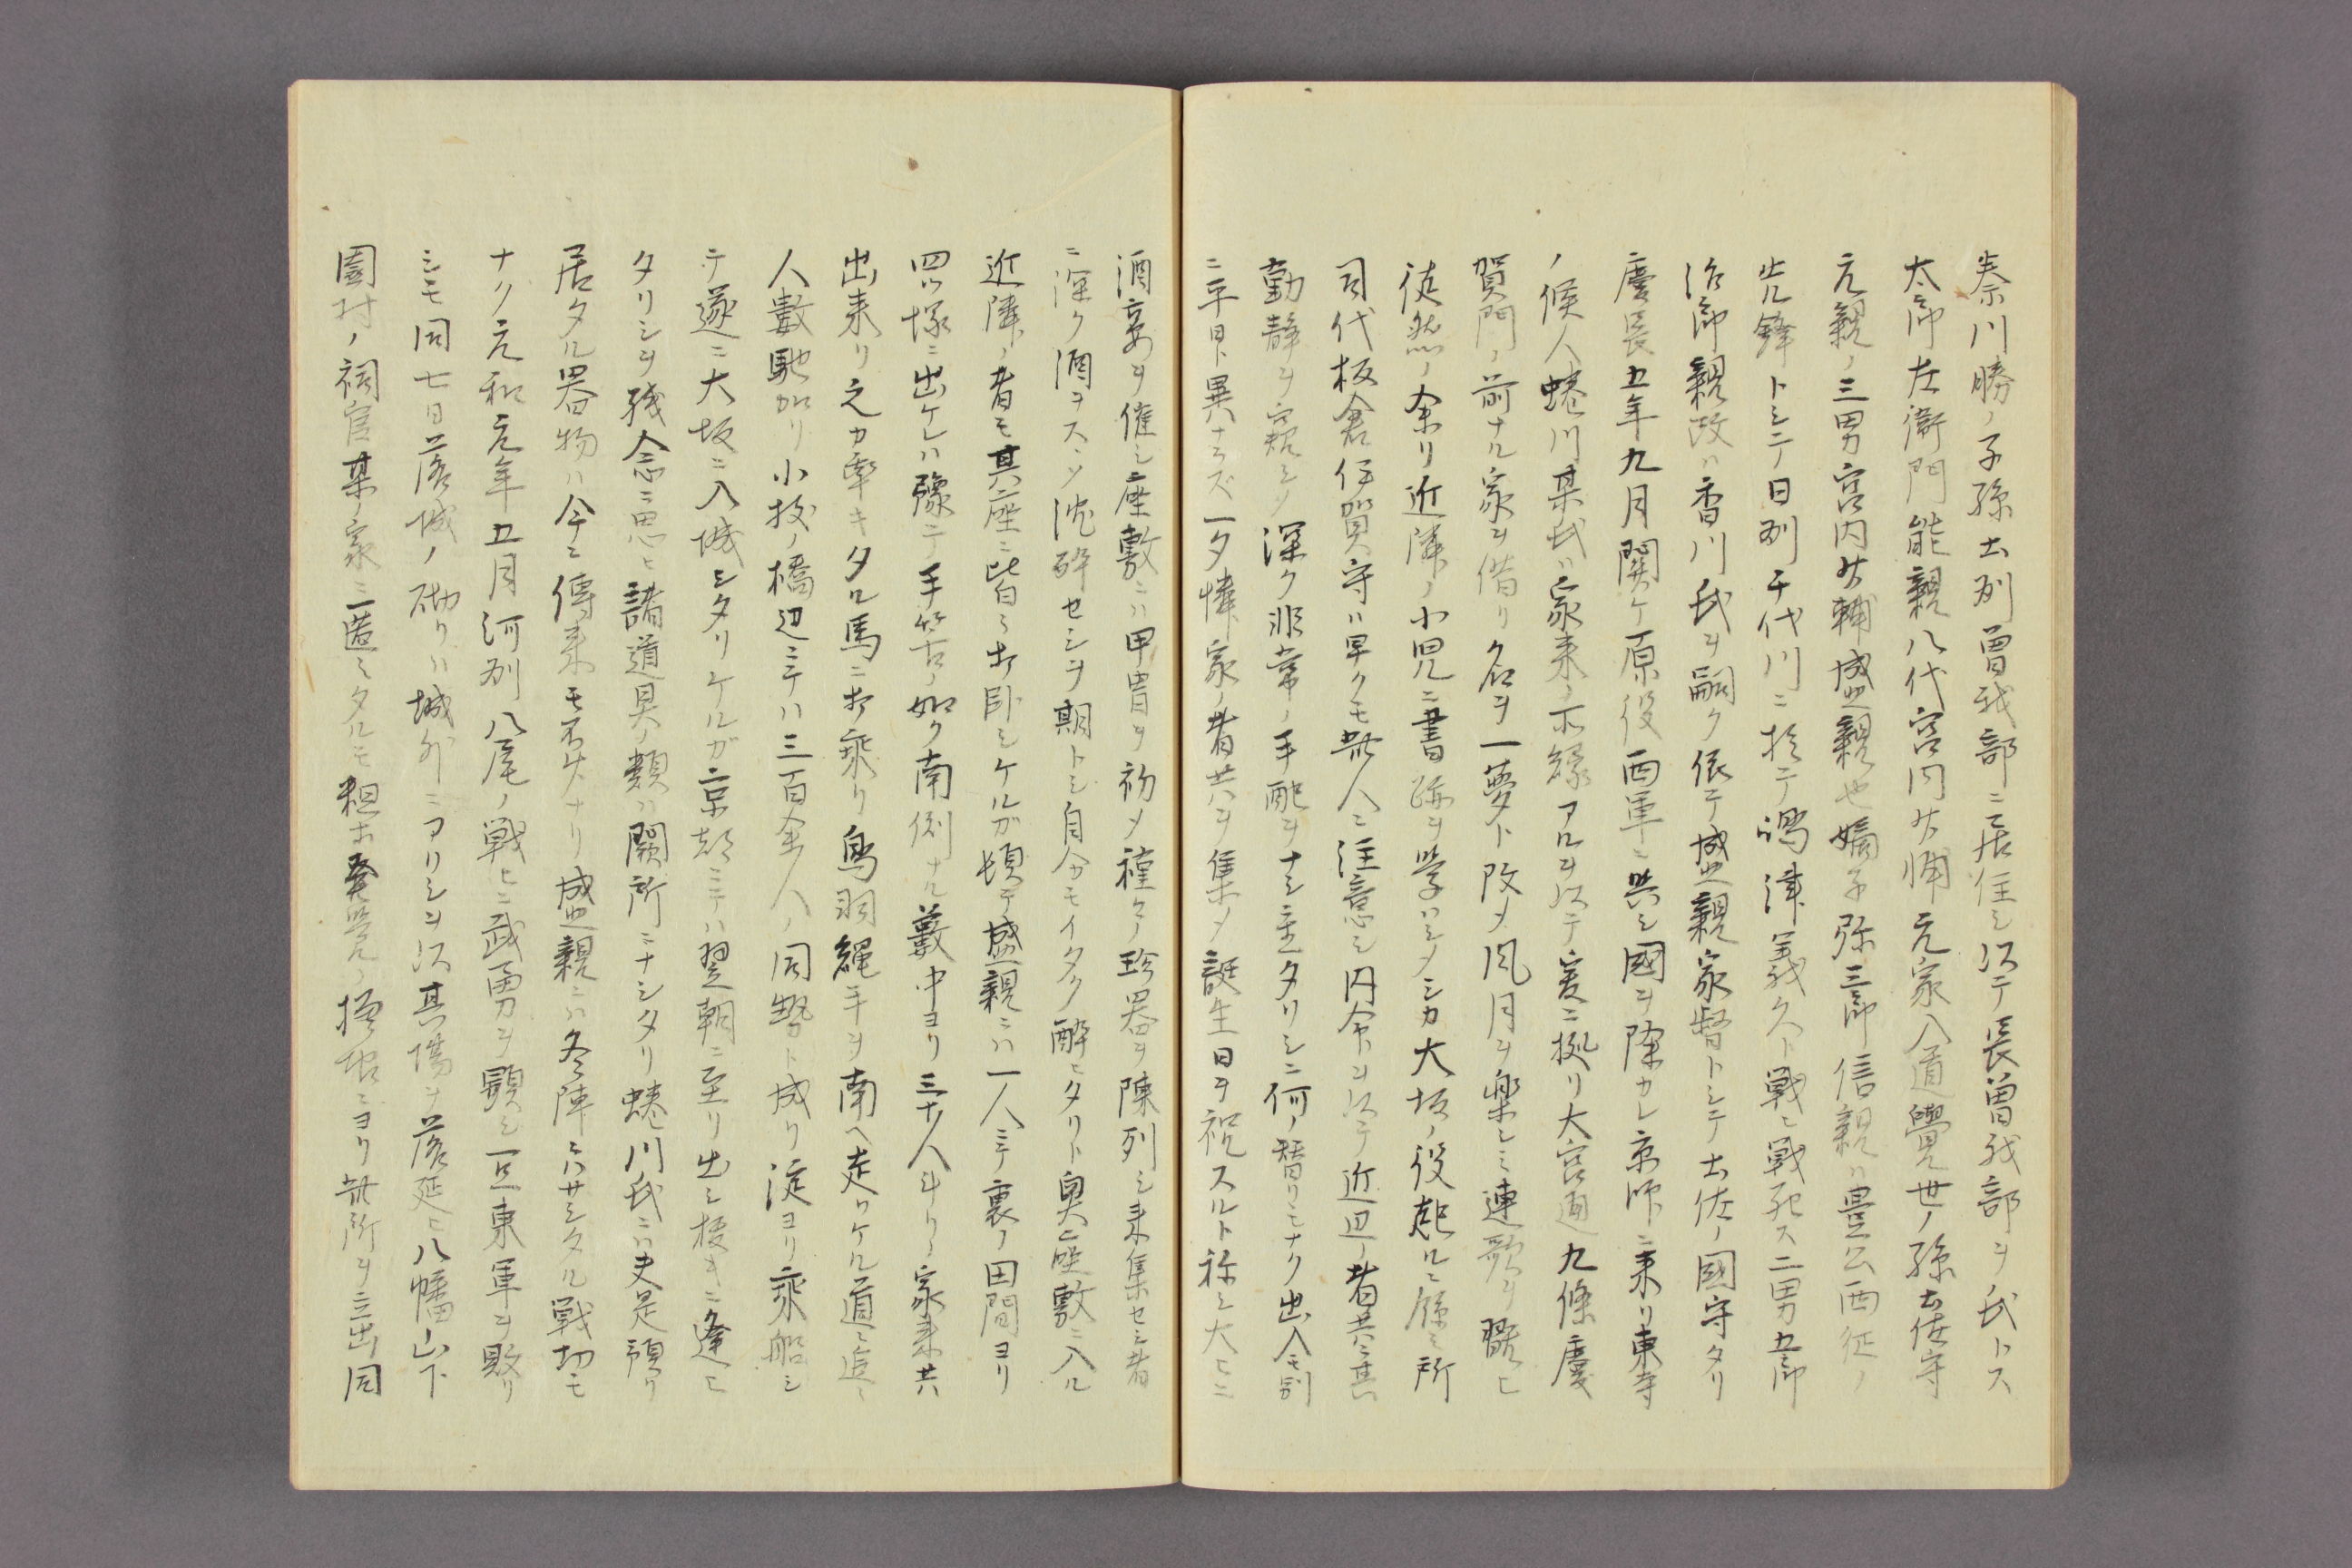 秦川勝ノ子孫土刕曽我部ニ居住シ以テ長曽我部ヲ氏トス
太郎左衛門能親八代宮内少輔元家入道覺世ノ孫土佐守
元親ノ三男宮内少輔盛親也嫡子弥三郎信親ハ豊公西征ノ
先鋒トシテ日刕千代川ニ於テ嶋津義久ト戦ヒ戦死ス二男五郎
治郎親政ハ香川氏ヲ嗣ク依テ盛親家督トシテ土佐ノ國守タリ
慶長五年九月関ケ原役西軍ニ與シ國ヲ除カレ京師ニ来リ東寺
ノ候人蜷川某氏ハ家来ノ示縁アルヲ以テ爰ニ拠リ大宮通九條慶
賀門ノ前ナル家ヲ借リ名ヲ一夢ト改メ風月ヲ楽シミ連歌ヲ翫ヒ
徒然ノ余リ近隣ノ小児ニ書跡ヲ学ハシメシカ大坂ノ役起ルニ臨ミ所
司代板倉伊賀守ハ早クモ此人ニ注意シ内命ヲ以テ近辺ノ者共ニ其
動静ヲ窺シメ深ク非常ノ手配ヲナシ立タリシニ何ノ替リモナク出入モ別
ニ平日ト異ナラズ一夕憐家ノ者共ヲ集メ誕生日ヲ祝スルト称シ大ヒニ
酒宴ヲ催シ座敷ニハ甲冑ヲ初メ種々ノ珍器ヲ陳列シ来集セシ者
ニ深ク酒ヲスヽメ沈酔セシヲ期トシ自分モイタク酔ヒタリト奥座敷ニ入ル
近隣ノ者モ其座ニ皆々打臥シケルガ頓テ盛親ニハ一人ニテ裏ノ田間ヨリ
四ツ塚ニ出ケレハ豫テ手筈ノ如ク南側ナル藪中ヨリ三十人斗リノ家来共
出来リ之カ牽キタル馬ニ打乗リ鳥羽縄手ヲ南ヘ走リケル道々追々
人數馳加リ小枝ノ橋辺ニテハ三百余人ノ同勢ト成リ淀ヨリ乘船シ
テ遂ニ大坂ニ入城シタリケルガ京都ニテハ翌朝ニ至リ出シ抜キニ逢ヒ
タリシヲ残念ニ思ヒ諸道具ノ類ハ闕所ニナシタリ蜷川氏ニハ丈是預リ
居タル器物ハ今ニ傳来モ不少ナリ盛親ニハ冬陣ニハサシタル戦功モ
ナク元和元年五月河刕八尾ノ戦ヒニ武勇ヲ顕シ一旦東軍ヲ敗リ
シモ同七日落城ノ砌リハ城外ニアリシヲ以其場ヲ落延ヒ八幡山下
園村ノ祠官某ノ家ニ匿ミタルモ粗ホ発覚ノ模様ニヨリ此所ヲ立出同